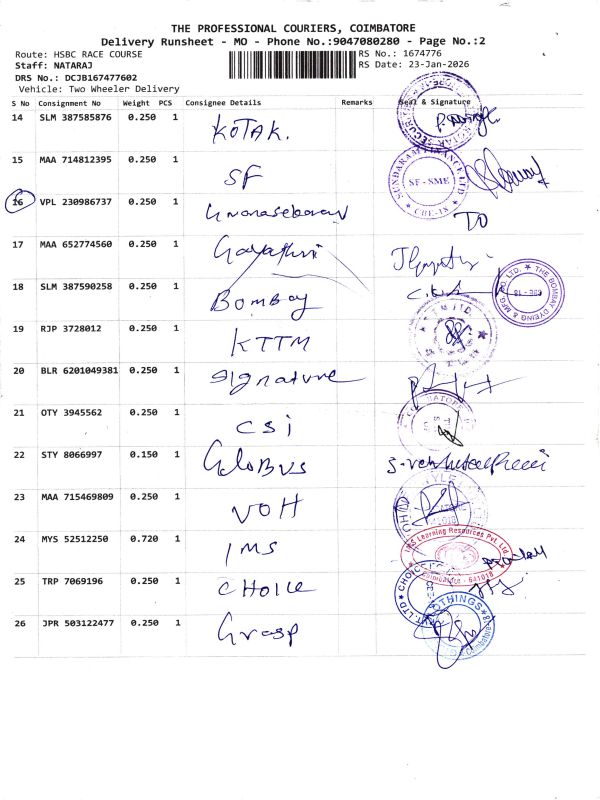 THE PROFESSIONAL COURIERS, COIMBATORE
Delivery Runsheet - MO - Phone No.:9047080280 - Page No.:2
Route: HSBC RACE COURSE
RS No.: 1674776
Staff: NATARAJ
RS Date: 23-Jan-2026
DRS No.: DCJB167477602
Vehicle: Two Wheeler Delivery
S No Consignment No Weight PCS Consignee Details Remarks Seal & Signature
14 SLM 387585876 0.250 1 KOTAK.
15 MAA 714812395 0.250 1 SF
SUNDARAM FINANCE LTD
SF - SME
CBE-18
16 VPL 230986737 0.250 1 Gnanasekaran TO
17 MAA 652774560 0.250 1 Gayathri
18 SLM 387590258 0.250 1 Bombay
THE BOMBAY DYEING & MFG. CO. LTD.
CBE - 18
19 RJP 3728012 0.250 1 KTTM
20 BLR 6201049381 0.250 1 Signature
21 OTY 3945562 0.250 1 CSi
22 STY 8066997 0.150 1 GLOBUS
23 MAA 715469809 0.250 1 VOH
24 MYS 52512250 0.720 1 IMS
IMS Learning Resources Pvt. Ltd.
Coimbatore - 641018
25 TRP 7069196 0.250 1 CHOICE
26 JPR 503122477 0.250 1 Grasp